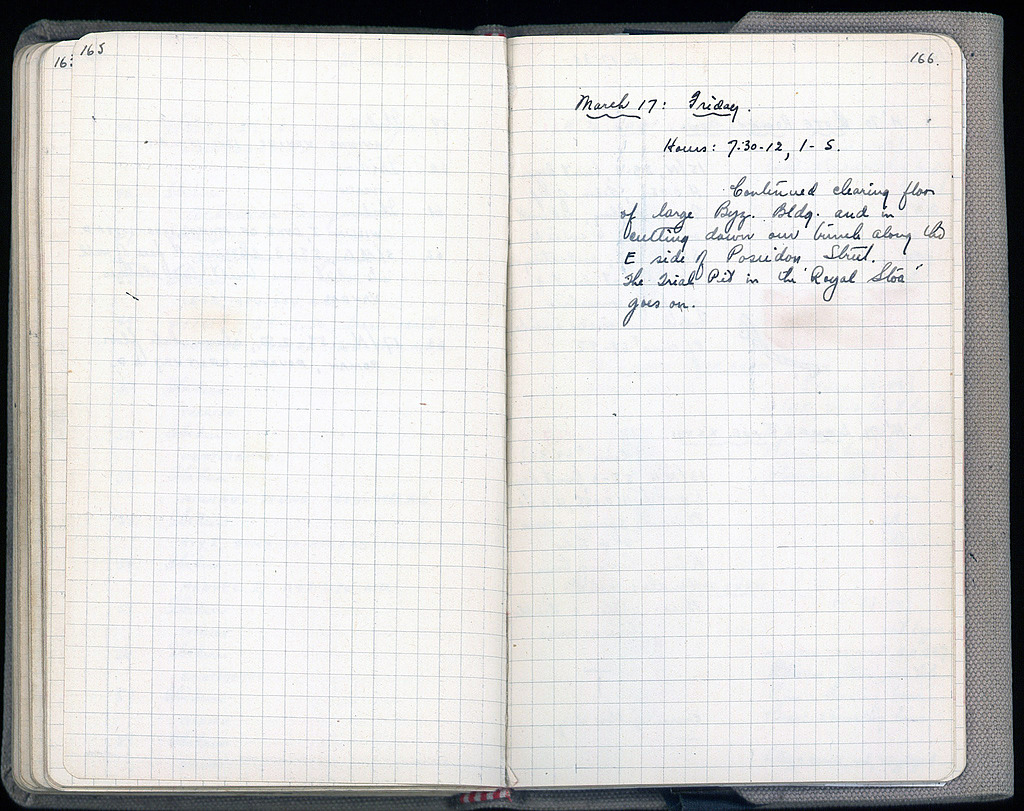 165
16
166.
March 17: Friday.
Hours: 7:30-12, 1-5.
Continued clearing floor
of large Byz. Bldg. and in
cutting down our trench along the
E side of Poseidon Street.
The Trial Pit in the "Royal Stoa"
goes on.